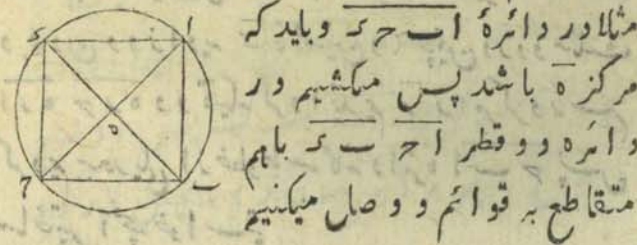 مثلا در دائرهٔ اب حء وباید که
مرکز ه باشد پس میکشیم در
دائره دو قطر اح ب ء باهم
متقاطع بر قوائم و وصل میکنیم
ء ا
ه
ح ب